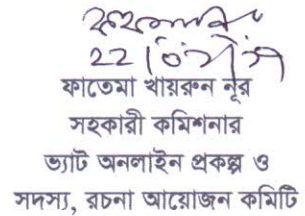 ফাতেমা খায়রুন নূর
সহকারী কমিশনার
ভ্যাট অনলাইন প্রকল্প ও
সদস্য, রচনা আয়োজন কমিটি